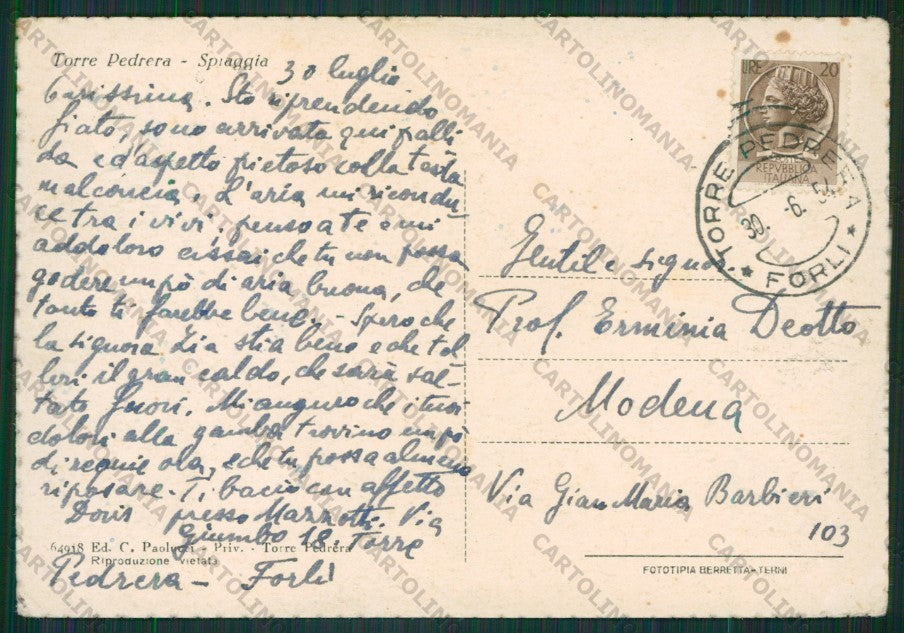 Torre Pedrera - Spiaggia
30 luglio
Carissima. Sto riprendendo
fiato, sono arrivata qui palli
da ed aspetto pietoso colla testa
malconcia. L'aria mi ricondu
ce tra i vivi. penso a te e mi
addoloro assai che tu non possa
godere un pò di aria buona, che
tanto ti farebbe bene. - Spero che
la signora Lia stia bene e che tol-
leri il gran caldo, che sarà sal-
tato fuori. Mi auguro che i tuoi
dolori alla gamba trovino un pò
di requie ola, e che tu possa almeno
riposare. Ti bacio con affetto
Doris presso Mazzotti. Via
Giumbo 18. Torre
Pedrera - Forlì
64918 Ed. C. Paolucci - Priv. - Torre Pedrera
Riproduzione vietata
LIRE 20
REPVBBLICA
ITALIANA
TORRE PEDRERA
30. -6. 54
* FORLI *
Gentile signora
Prof. Erminia Deotto
Modena
Via Gian Maria Barbieri
103
FOTOTIPIA BERRETTA - TERNI
CARTOLINOMANIA